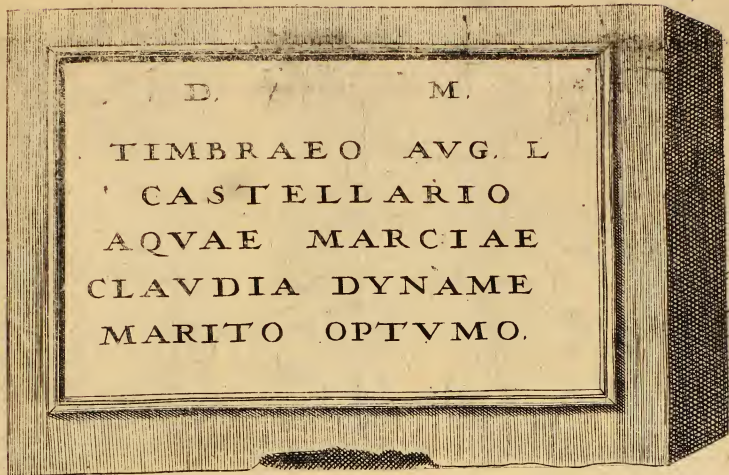 D. M.
TIMBRAEO AVG. L
CASTELLARIO
AQVAE MARCIAE
CLAVDIA DYNAME
MARITO OPTVMO.